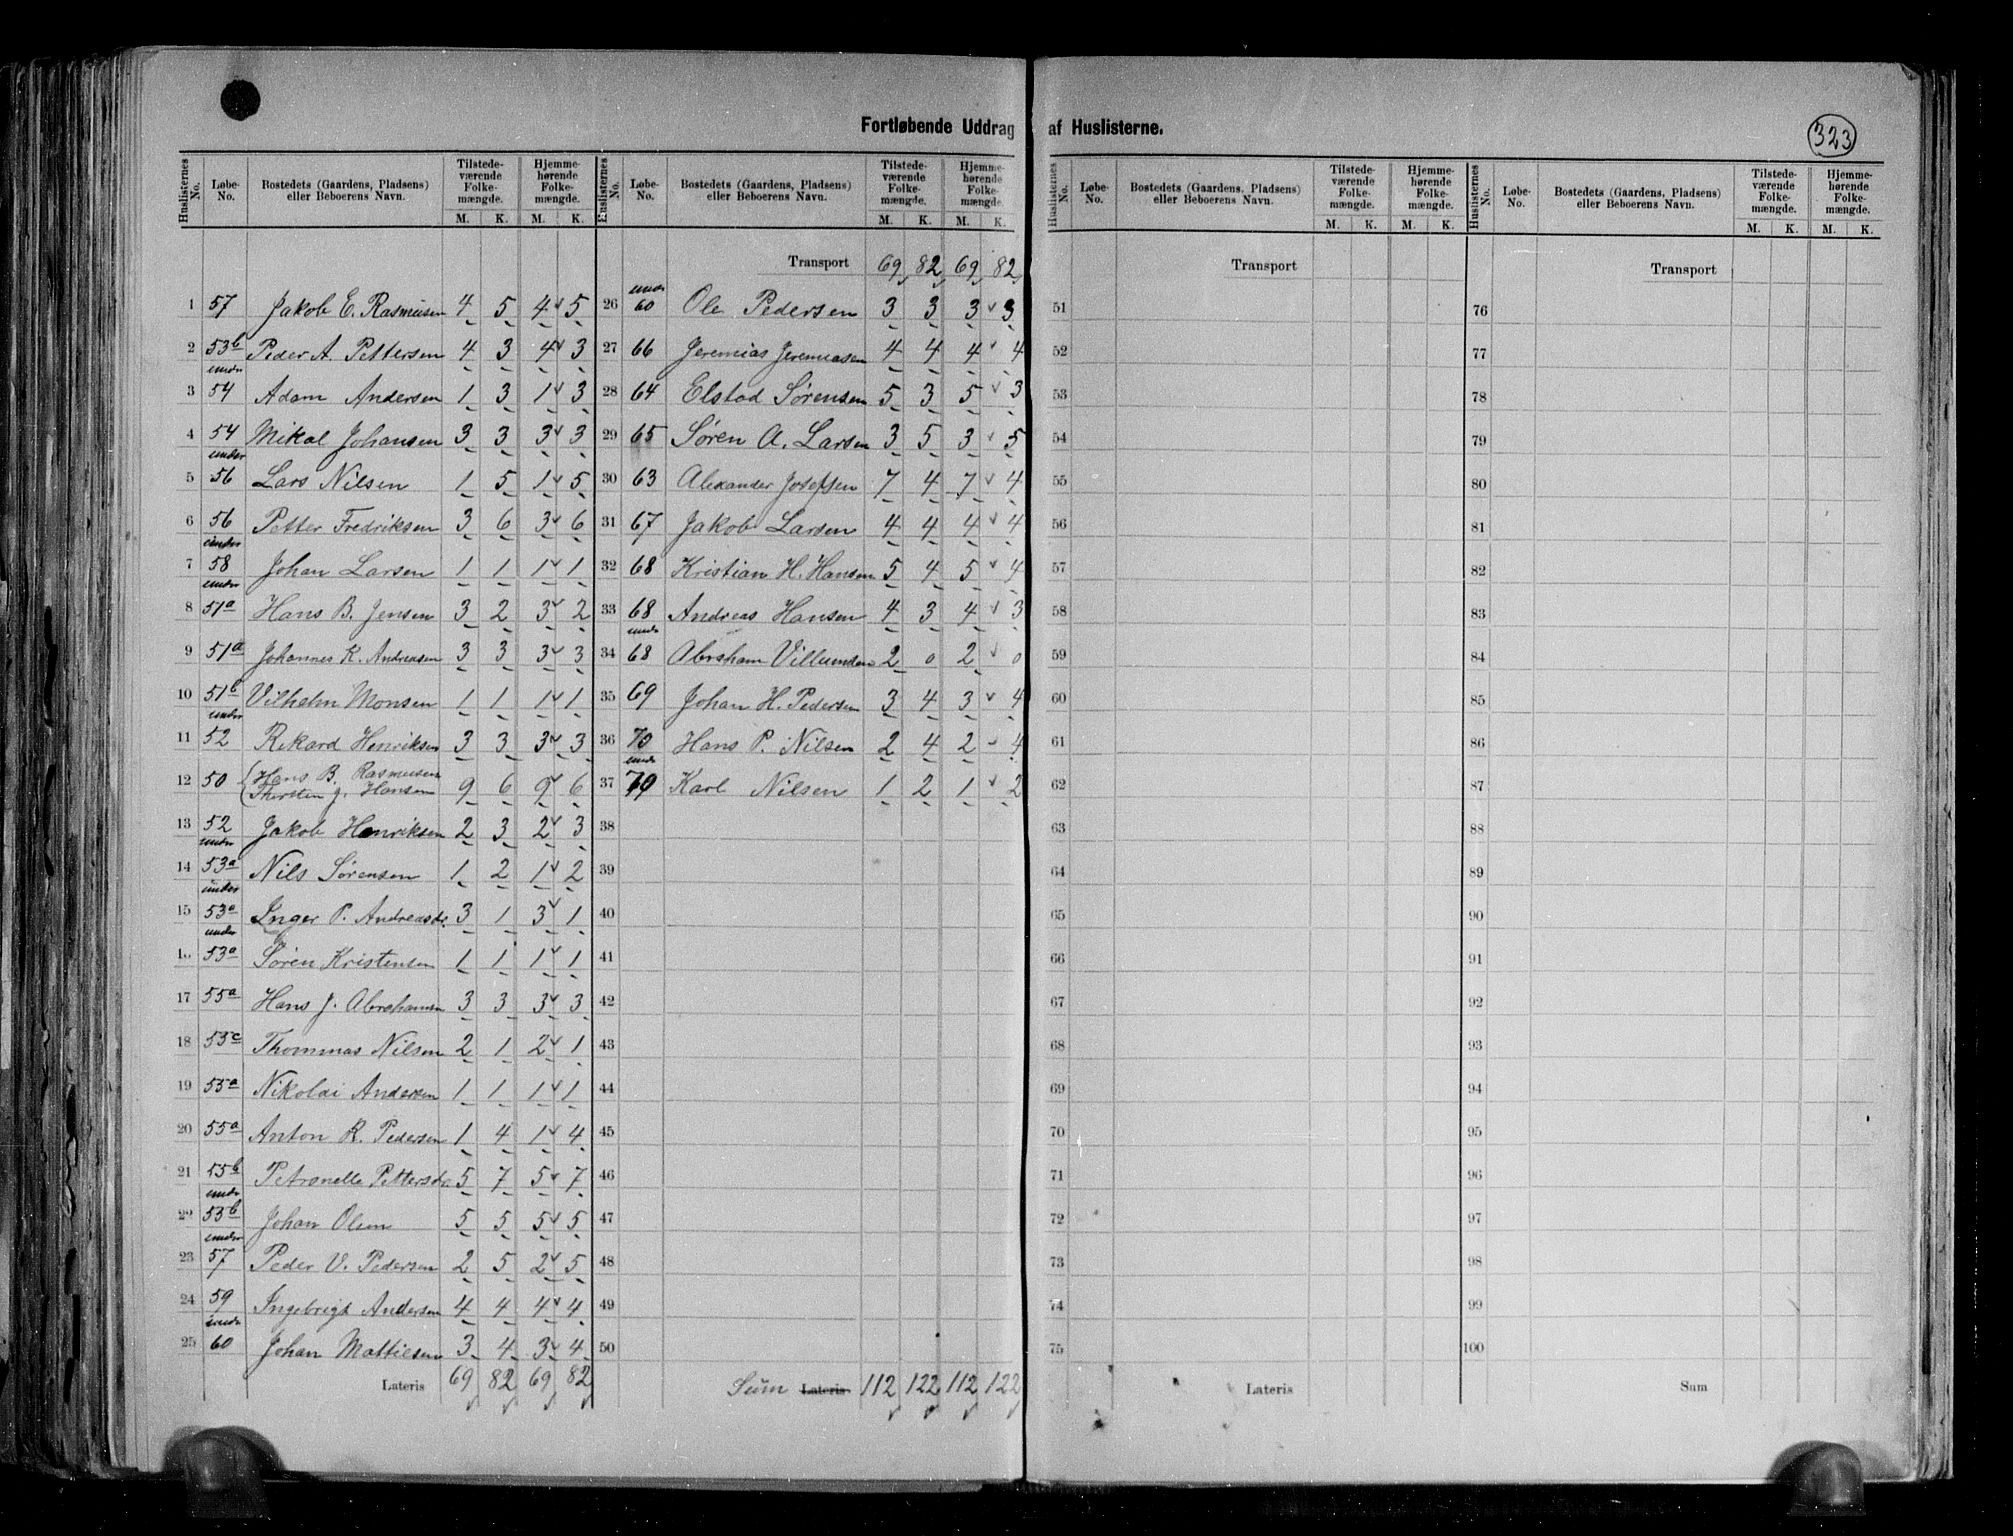 Fortløbende Uddrag af Huslisterne.
323
Huslisternes No. Løbe-No. Bostedets (Gaardens, Pladsens) eller Beboerens Navn. Tilstedeværende Folkemængde. M. K. Hjemmehørende Folkemængde. M. K.
1 57 Jakob E. Rasmusen 4 5 4 5
2 53b Peder A. Pettersen 4 3 4 3
3 under 54 Adam Andersen 1 3 1 3
4 54 Mikal Johansen 3 3 3 3
5 under 56 Lars Nilsen 1 5 1 5
6 56 Petter Fredriksen 3 6 3 6
7 under 58 Johan Larsen 1 1 1 1
8 under 51a Hans B. Jensen 3 2 3 2
9 51a Johannes K. Andreasen 3 3 3 3
10 51b Vilhelm Monsen 1 1 1 1
11 under 52 Rikard Henriksen 3 3 3 3
12 50 Hans B. Rasmusen
Thersten J. Hansen 9 6 9 6
13 52 Jakob Henriksen 2 3 2 3
14 under 53a Nils Sørensen 1 2 1 2
15 under 53a Inger P. Andreasdr. 3 1 3 1
16 under 53a Søren Kristensen 1 1 1 1
17 55a Hans J. Abrahamsen 3 3 3 3
18 53c Thommas Nilsen 2 1 2 1
19 55a Nikolai Andersen 1 1 1 1
20 55a Anton R. Pedersen 1 4 1 4
21 55b Petronelle Pettersdr. 5 7 5 7
22 under 53b Johan Olsen 5 5 5 5
23 under 57 Peder V. Pedersen 2 5 2 5
24 59 Ingebrigt Andersen 4 4 4 4
25 under 60 Johan Mattiesen 3 4 3 4
Lateris 69 82 69 82
Huslisternes No. Løbe-No. Bostedets (Gaardens, Pladsens) eller Beboerens Navn. Tilstedeværende Folkemængde. M. K. Hjemmehørende Folkemængde. M. K.
Transport 69 82 69 82
26 under 60 Ole Pedersen 3 3 3 3
27 66 Jeremias Jeremiasen 4 4 4 4
28 64 Elstad Sørensen 5 3 5 3
29 65 Søren A. Larsen 3 5 3 5
30 63 Alexander Josefsen 7 4 7 4
31 67 Jakob Larsen 4 4 4 4
32 68 Kristian H. Hansen 5 4 5 4
33 68 Andreas Hansen 4 3 4 3
34 under 68 Abraham Villumsen 2 0 2 0
35 69 Johan H. Pedersen 3 4 3 4
36 70 Hans P. Nilsen 2 4 2 4
37 under 70 Karl Nilsen 1 2 1 2
38
39
40
41
42
43
44
45
46
47
48
49
50
Sum Lateris 112 122 112 122
Huslisternes No. Løbe-No. Bostedets (Gaardens, Pladsens) eller Beboerens Navn. Tilstedeværende Folkemængde. M. K. Hjemmehørende Folkemængde. M. K.
Transport
51
52
53
54
55
56
57
58
59
60
61
62
63
64
65
66
67
68
69
70
71
72
73
74
75
Lateris
Huslisternes No. Løbe-No. Bostedets (Gaardens, Pladsens) eller Beboerens Navn. Tilstedeværende Folkemængde. M. K. Hjemmehørende Folkemængde. M. K.
Transport
76
77
78
79
80
81
82
83
84
85
86
87
88
89
90
91
92
93
94
95
96
97
98
99
100
Sum